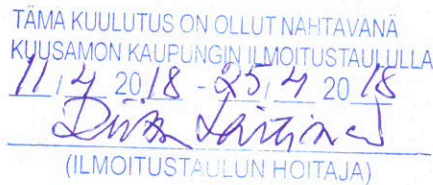 TÄMÄ KUULUTUS ON OLLUT NÄHTÄVÄNÄ
KUUSAMON KAUPUNGIN ILMOITUSTAULULLA
11 / 4 2018 - 25 / 4 2018
(ILMOITUSTAULUN HOITAJA)